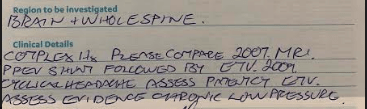 Region to be investigated
BRAIN + WHOLE SPINE.
Clinical Details
COMPLEX Hx PLEASE COMPARE 2007. MRI.
PREV SHUNT FOLLOWED BY ETV. 2009.
CYCLICAL HEADACHE ASSESS PATENCY ETV.
ASSESS EVIDENCE CHRONIC LOW PRESSURE.